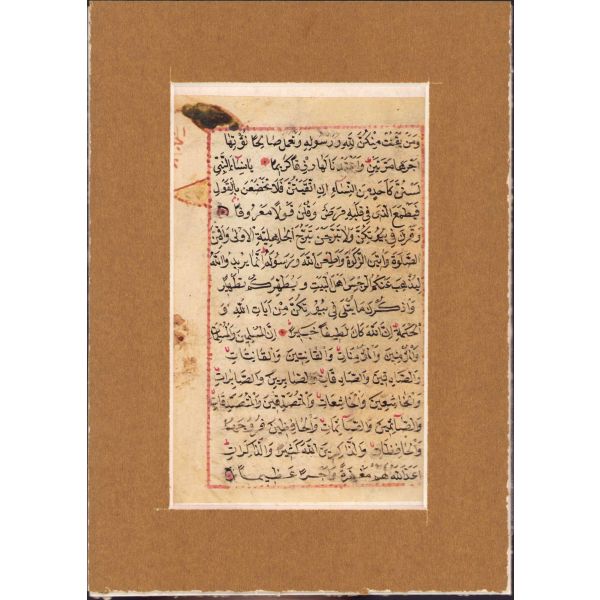 ومن يقنت منكن لله ورسوله وتعمل صالحا نؤتها
اجرها مرتين واعتدنا لها رزقا كريما يا نساء النبي
لستن كاحد من النساء ان اتقيتن فلا تخضعن بالقول
فيطمع الذي في قلبه مرض وقلن قولا معروفا
وقرن في بيوتكن ولا تبرجن تبرج الجاهلية الاولى واقمن
الصلوة واتين الزكوة واطعن الله ورسوله انما يريد الله
ليذهب عنكم الرجس اهل البيت ويطهركم تطهيرا
واذكرن ما يتلى في بيوتكن من آيات الله و
الحكمة ان الله كان لطيفا خبيرا ان المسلمين والمسلمات
والمؤمنين والمؤمنات والقانتين والقانتات
والصادقين والصادقات والصابرين والصابرات
والخاشعين والخاشعات والمتصدقين والمتصدقات
والصائمين والصائمات والحافظين فروجهم
والحافظات والذاكرين الله كثيرا والذاكرات
اعد الله لهم مغفرة واجرا عظيما